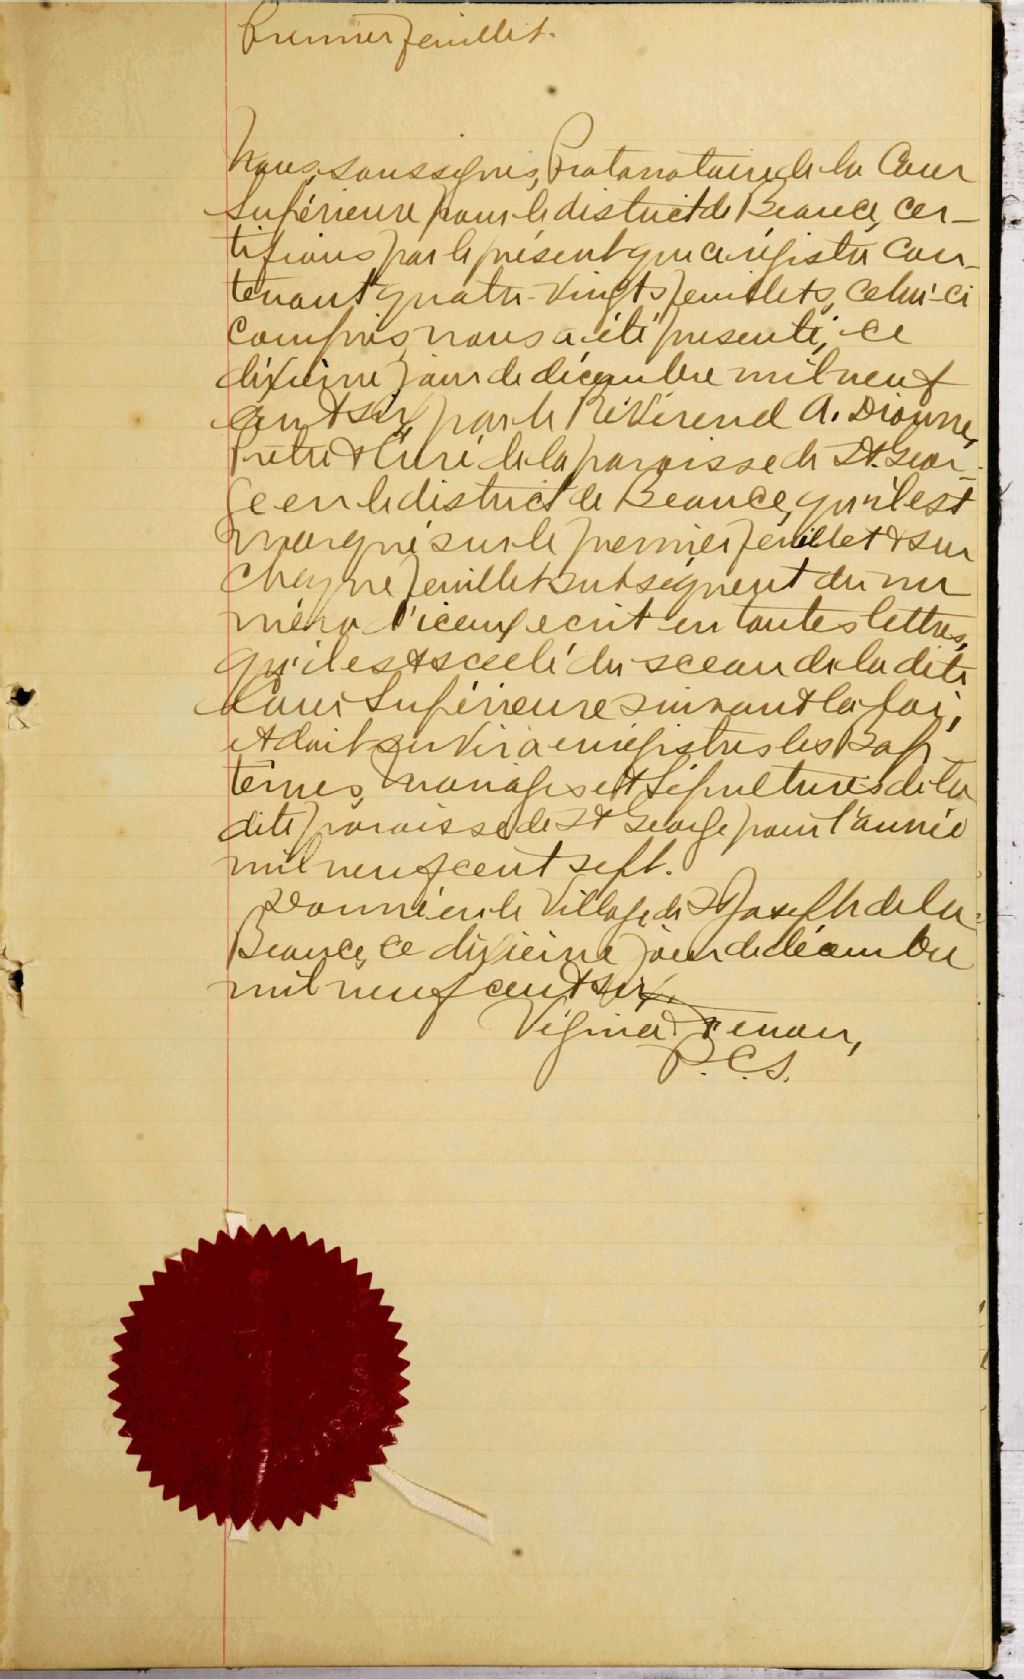 Premier feuillet.
Nous, soussignés, Protonotaire de la Cour
Supérieure pour le district de Beauce, cer-
tifions par le présent que ce régistre con-
tenant quatre-vingts feuillets, celui-ci
compris, nous a été présenté, ce
dixième jour de décembre mil neuf
cent six, par le Révérend A. Dionne,
Prêtre & Curé de la paroisse de St. Geor-
ge en le district de Beauce, qu'il est
marqué sur le premier feuillet & sur
chaque feuillet subséquent du nu
méro d'iceux écrit en toutes lettres,
qu'il est scéelé du sceau de la dite
Cour Supérieure suivant la loi,
et doit servir à enrégistrer les Bap-
têmes, Mariages et Sépultures de la
dite paroisse de St George pour l'année
mil neuf cent sept.
Donné en le Village de St Joseph de la
Beauce, ce dixième jour de décembre
mil neuf cent six.
Vézina &
P.C.S.